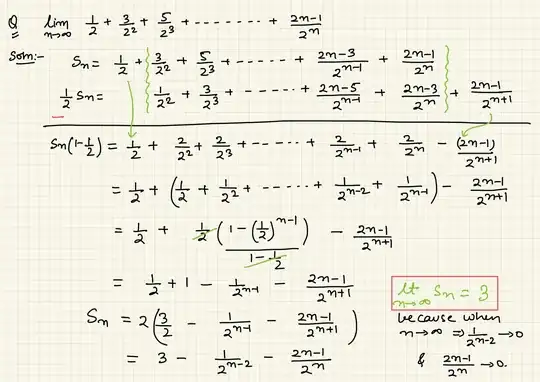 Q lim n→∞ 1/2 + 3/2² + 5/2³ + -------- + (2n-1)/2ⁿ
Som:- Sn = 1/2 + 3/2² + 5/2³ + ------ + (2n-3)/2ⁿ⁻¹ + (2n-1)/2ⁿ
1/2 Sn = 1/2² + 3/2³ + ------ + (2n-5)/2ⁿ⁻¹ + (2n-3)/2ⁿ + (2n-1)/2ⁿ⁺¹
Sn(1-1/2) = 1/2 + 2/2² + 2/2³ + ----- + 2/2ⁿ⁻¹ + 2/2ⁿ - (2n-1)/2ⁿ⁺¹
= 1/2 + (1/2 + 1/2² + ----- + 1/2ⁿ⁻² + 1/2ⁿ⁻¹) - (2n-1)/2ⁿ⁺¹
= 1/2 + 1/2(1-(1/2)ⁿ⁻¹)/(1-1/2) - (2n-1)/2ⁿ⁺¹
= 1/2 + 1 - 1/2ⁿ⁻¹ - (2n-1)/2ⁿ⁺¹
Sn = 2(3/2 - 1/2ⁿ⁻¹ - (2n-1)/2ⁿ⁺¹)
= 3 - 1/2ⁿ⁻² - (2n-1)/2ⁿ
lt n→∞ Sn = 3
because when
n→∞ ⇒ 1/2ⁿ⁻² → 0
& (2n-1)/2ⁿ → 0.